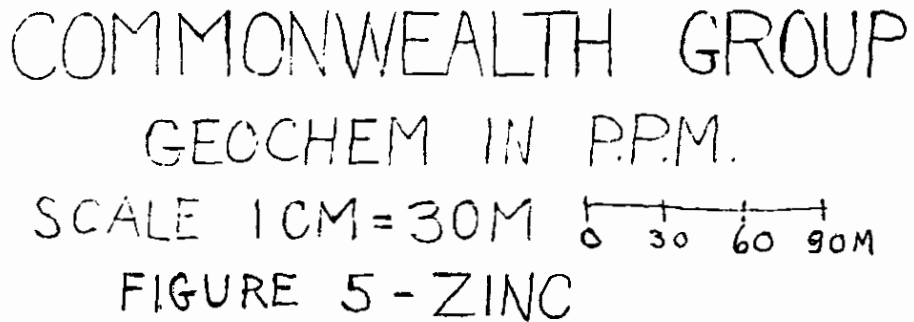 COMMONWEALTH GROUP
GEOCHEM IN P.P.M.
SCALE 1CM=30M 0 30 60 90M
FIGURE 5-ZINC